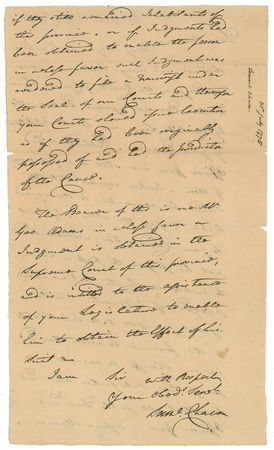 if they still remained Inhabitants of
this province. or if Judgments had
been obtained to enable the person
in whose favor such Judgment was
rendered to file a transcript under
the Seal of our Courts and thereupon
your Courts should issue Execution
as if they had been originally
possessed of and had the Jurisdiction
of the Cause.
The Bearer of this is one Mr
Geo. Adams in whose favor a
Judgment is obtained in the
Supreme Court of this province,
and is intitled to the assistance
of your Legislature to enable
him to obtain the Effect of his
suit
I am Sir with Respect
Your Obedt. Servt.
Saml Chase
Samuel Chase